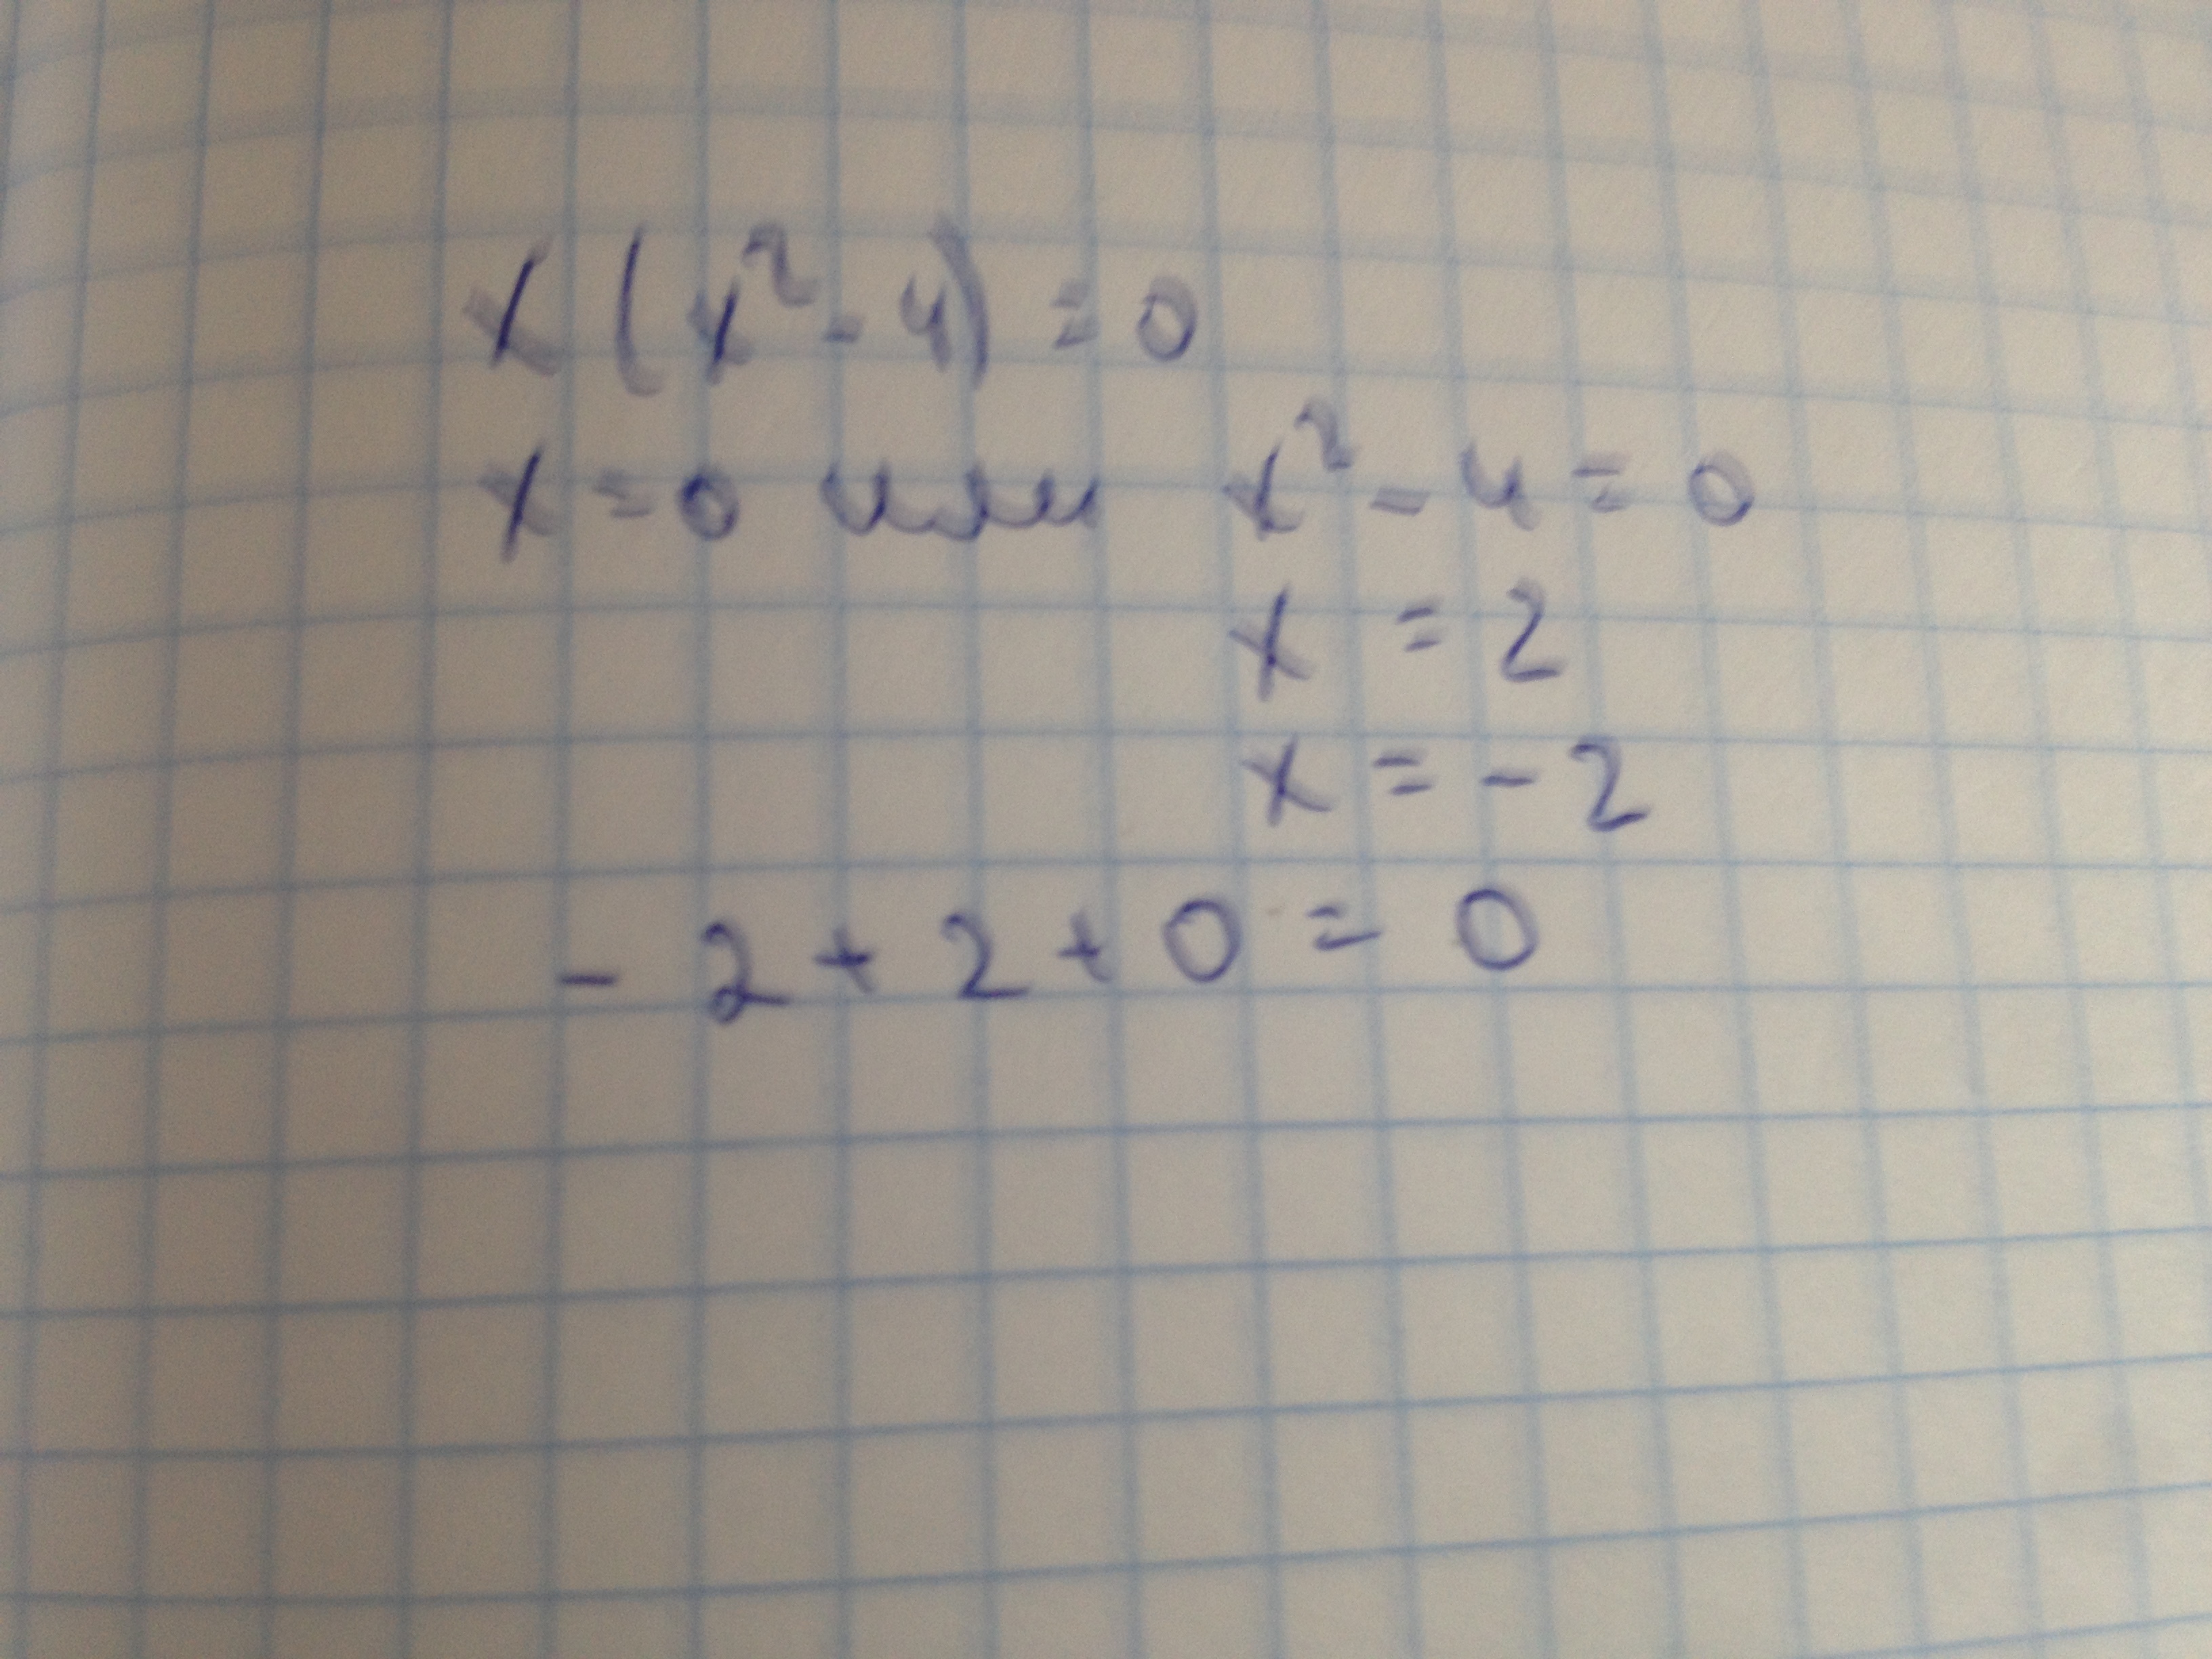 x(x²-4)=0
x=0 или x²-4=0
x = 2
x = -2
-2+2+0 = 0